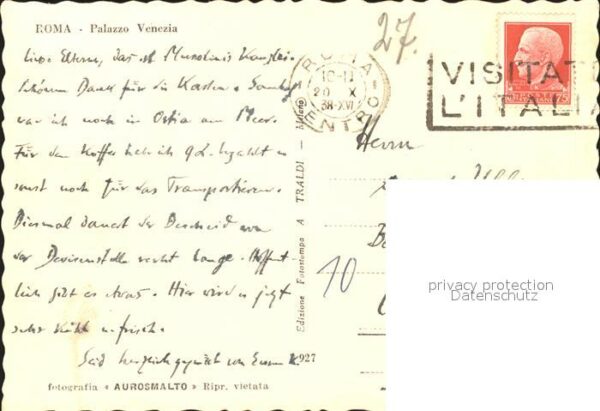 ROMA - Palazzo Venezia
27.
Liebe Eltern, das ist Mussolinis Kanzlei.
Schönen Dank für die Karten. Sonntag
war ich noch in Ostia am Meer.
Für den Koffer hab ich 9 L. bezahlt
sonst noch für das Transportieren.
Diesmal dauert der Bescheid von
der Devisenstelle recht lange. Hoffent-
lich gibt es etwas. Hier wird es jetzt
sehr kühl u. frisch.
Seid herzlich gegrüsst von Eurem K.
927
fotografia « AUROSMALTO » Ripr. vietata
Edizione Fotostampa A TRALDI - Milano
ROMA CENTRO
10-11
20 X
38-XVI
VISITATE
L'ITALIA
75
Herrn
10
privacy protection
Datenschutz